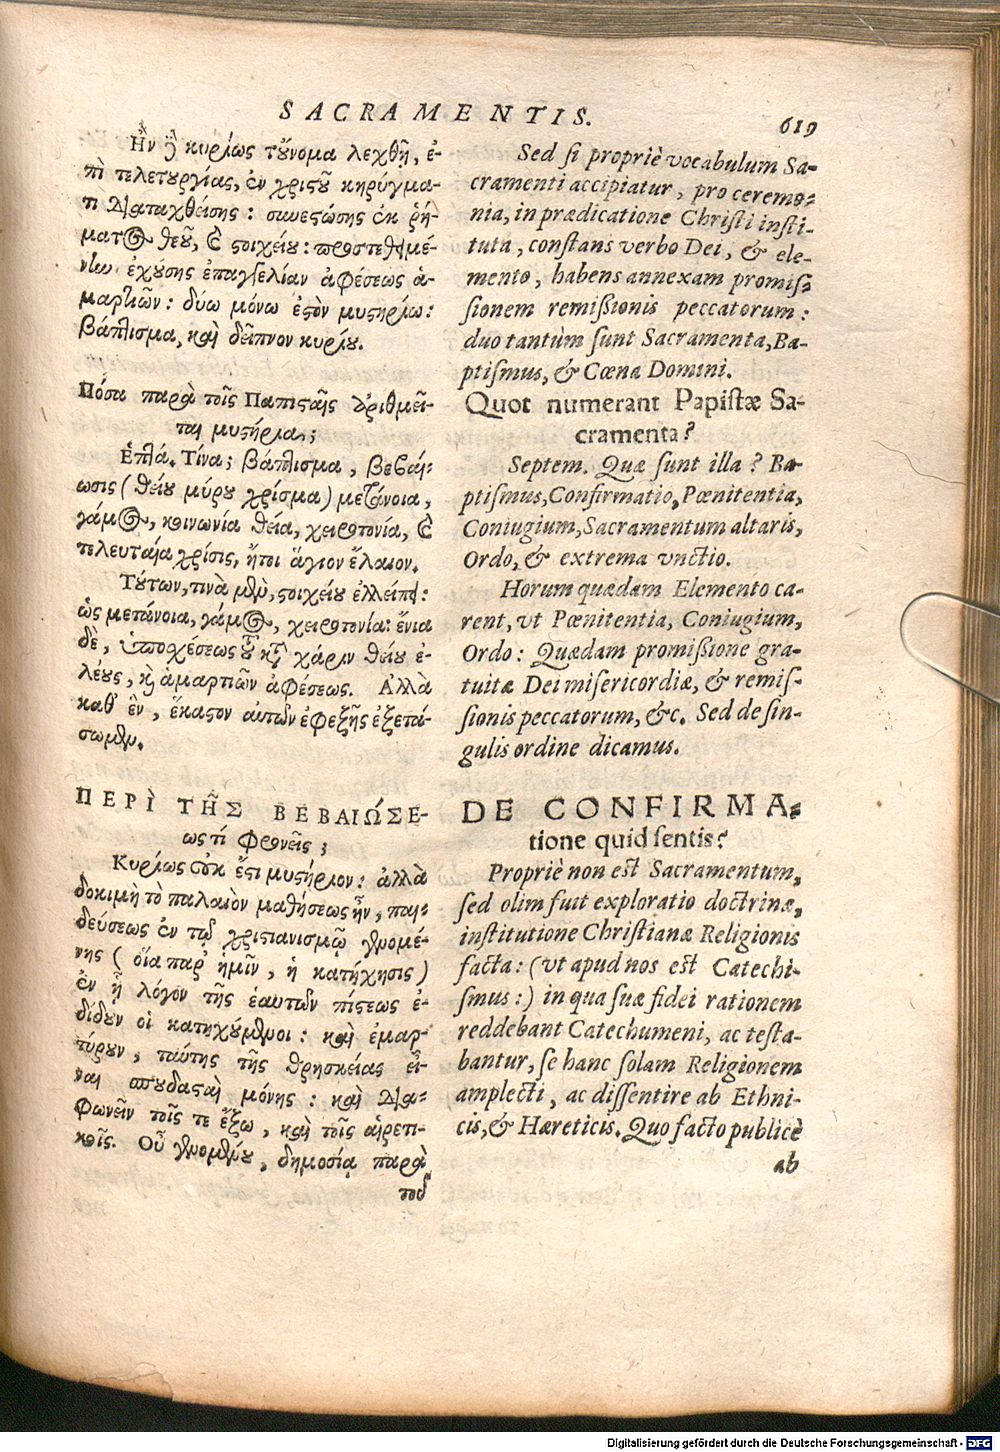 SACRAMENTIS.
619
Ἢν ϳ κυρίως τοὔνομα λεχθῇ, ἐ-
πὶ τελετουργίας, ἐν χριστοῦ κηρύγμα-
τι διαταχθείσης: συνεστώσης ἐκ ῥή-
ματος θεοῦ, καὶ στοιχείου: προστεθειμέ-
νην ἐχούσης ἐπαγγελίαν ἀφέσεως ἁ-
μαρτιῶν: δύω μόνω ἐστὸν μυστηρίω:
βάπτισμα, καὶ δεῖπνον κυρίου.
Πόσα παρὰ τοῖς Παπισταῖς ἀριθμεῖ-
ται μυστήρια;
Ἑπτά. Τίνα; βάπτισμα, βεβαί-
ωσις (θείου μύρου χρίσμα) μετάνοια,
γάμος, κοινωνία θεία, χειροτονία, καὶ
τελευταία χρίσις, ἤτοι ἅγιον ἔλαιον.
Τούτων, τινὰ μὲν, στοιχείου ἐλλείπει:
ὡς μετάνοια, γάμος, χειροτονία: ἔνια
δὲ, ὑποσχέσεως τοῦ κατὰ χάριν θείου ἐ-
λέους, καὶ ἁμαρτιῶν ἀφέσεως. Ἀλλὰ
καθ' ἓν, ἕκαστον αὐτῶν ἐφεξῆς ἐξετά-
σωμεν.
ΠΕΡῚ ΤΗ͂Σ ΒΕΒΑΙΏΣΕ-
ως τί φρονεῖς;
Κυρίως οὐκ ἔστι μυστήριον: ἀλλὰ
δοκιμὴ τὸ παλαιὸν μαθήσεως ἦν, παι-
δεύσεως ἐν τῷ χριστιανισμῷ γενομέ-
νης (οἵα παρ' ἡμῖν, ἡ κατήχησις)
ἐν ᾗ λόγον τῆς ἑαυτῶν πίστεως ἐ-
δίδουν οἱ κατηχούμενοι: καὶ ἐμαρ-
τύρουν, ταύτης τῆς θρησκείας εἶ-
ναι σπουδασταὶ μόνης: καὶ δια-
φωνεῖν τοῖς τε ἔξω, καὶ τοῖς αἱρετι-
κοῖς. Οὗ γενομένου, δημοσίᾳ παρὰ
τοῦ
Sed si propriè vocabulum Sa-
cramenti accipiatur, pro ceremo-
nia, in prædicatione Christi insti-
tuta, constans verbo Dei, & ele-
mento, habens annexam promis-
sionem remissionis peccatorum:
duo tantùm sunt Sacramenta, Ba-
ptismus, & Cœna Domini.
Quot numerant Papistæ Sa-
cramenta?
Septem. Quæ sunt illa? Ba-
ptismus, Confirmatio, Pœnitentia,
Coniugium, Sacramentum altaris,
Ordo, & extrema vnctio.
Horum quædam Elemento ca-
rent, vt Pœnitentia, Coniugium,
Ordo: Quædam promissione gra-
tuitæ Dei misericordiæ, & remis-
sionis peccatorum, &c. Sed de sin-
gulis ordine dicamus.
DE CONFIRMA-
tione quid sentis?
Propriè non est Sacramentum,
sed olim fuit exploratio doctrinæ,
institutione Christianæ Religionis
facta: (vt apud nos est Catechi-
smus:) in qua suæ fidei rationem
reddebant Catechumeni, ac testa-
bantur, se hanc solam Religionem
amplecti, ac dissentire ab Ethni-
cis, & Hæreticis. Quo facto publicè
ab
Digitalisierung gefördert durch die Deutsche Forschungsgemeinschaft - DFG